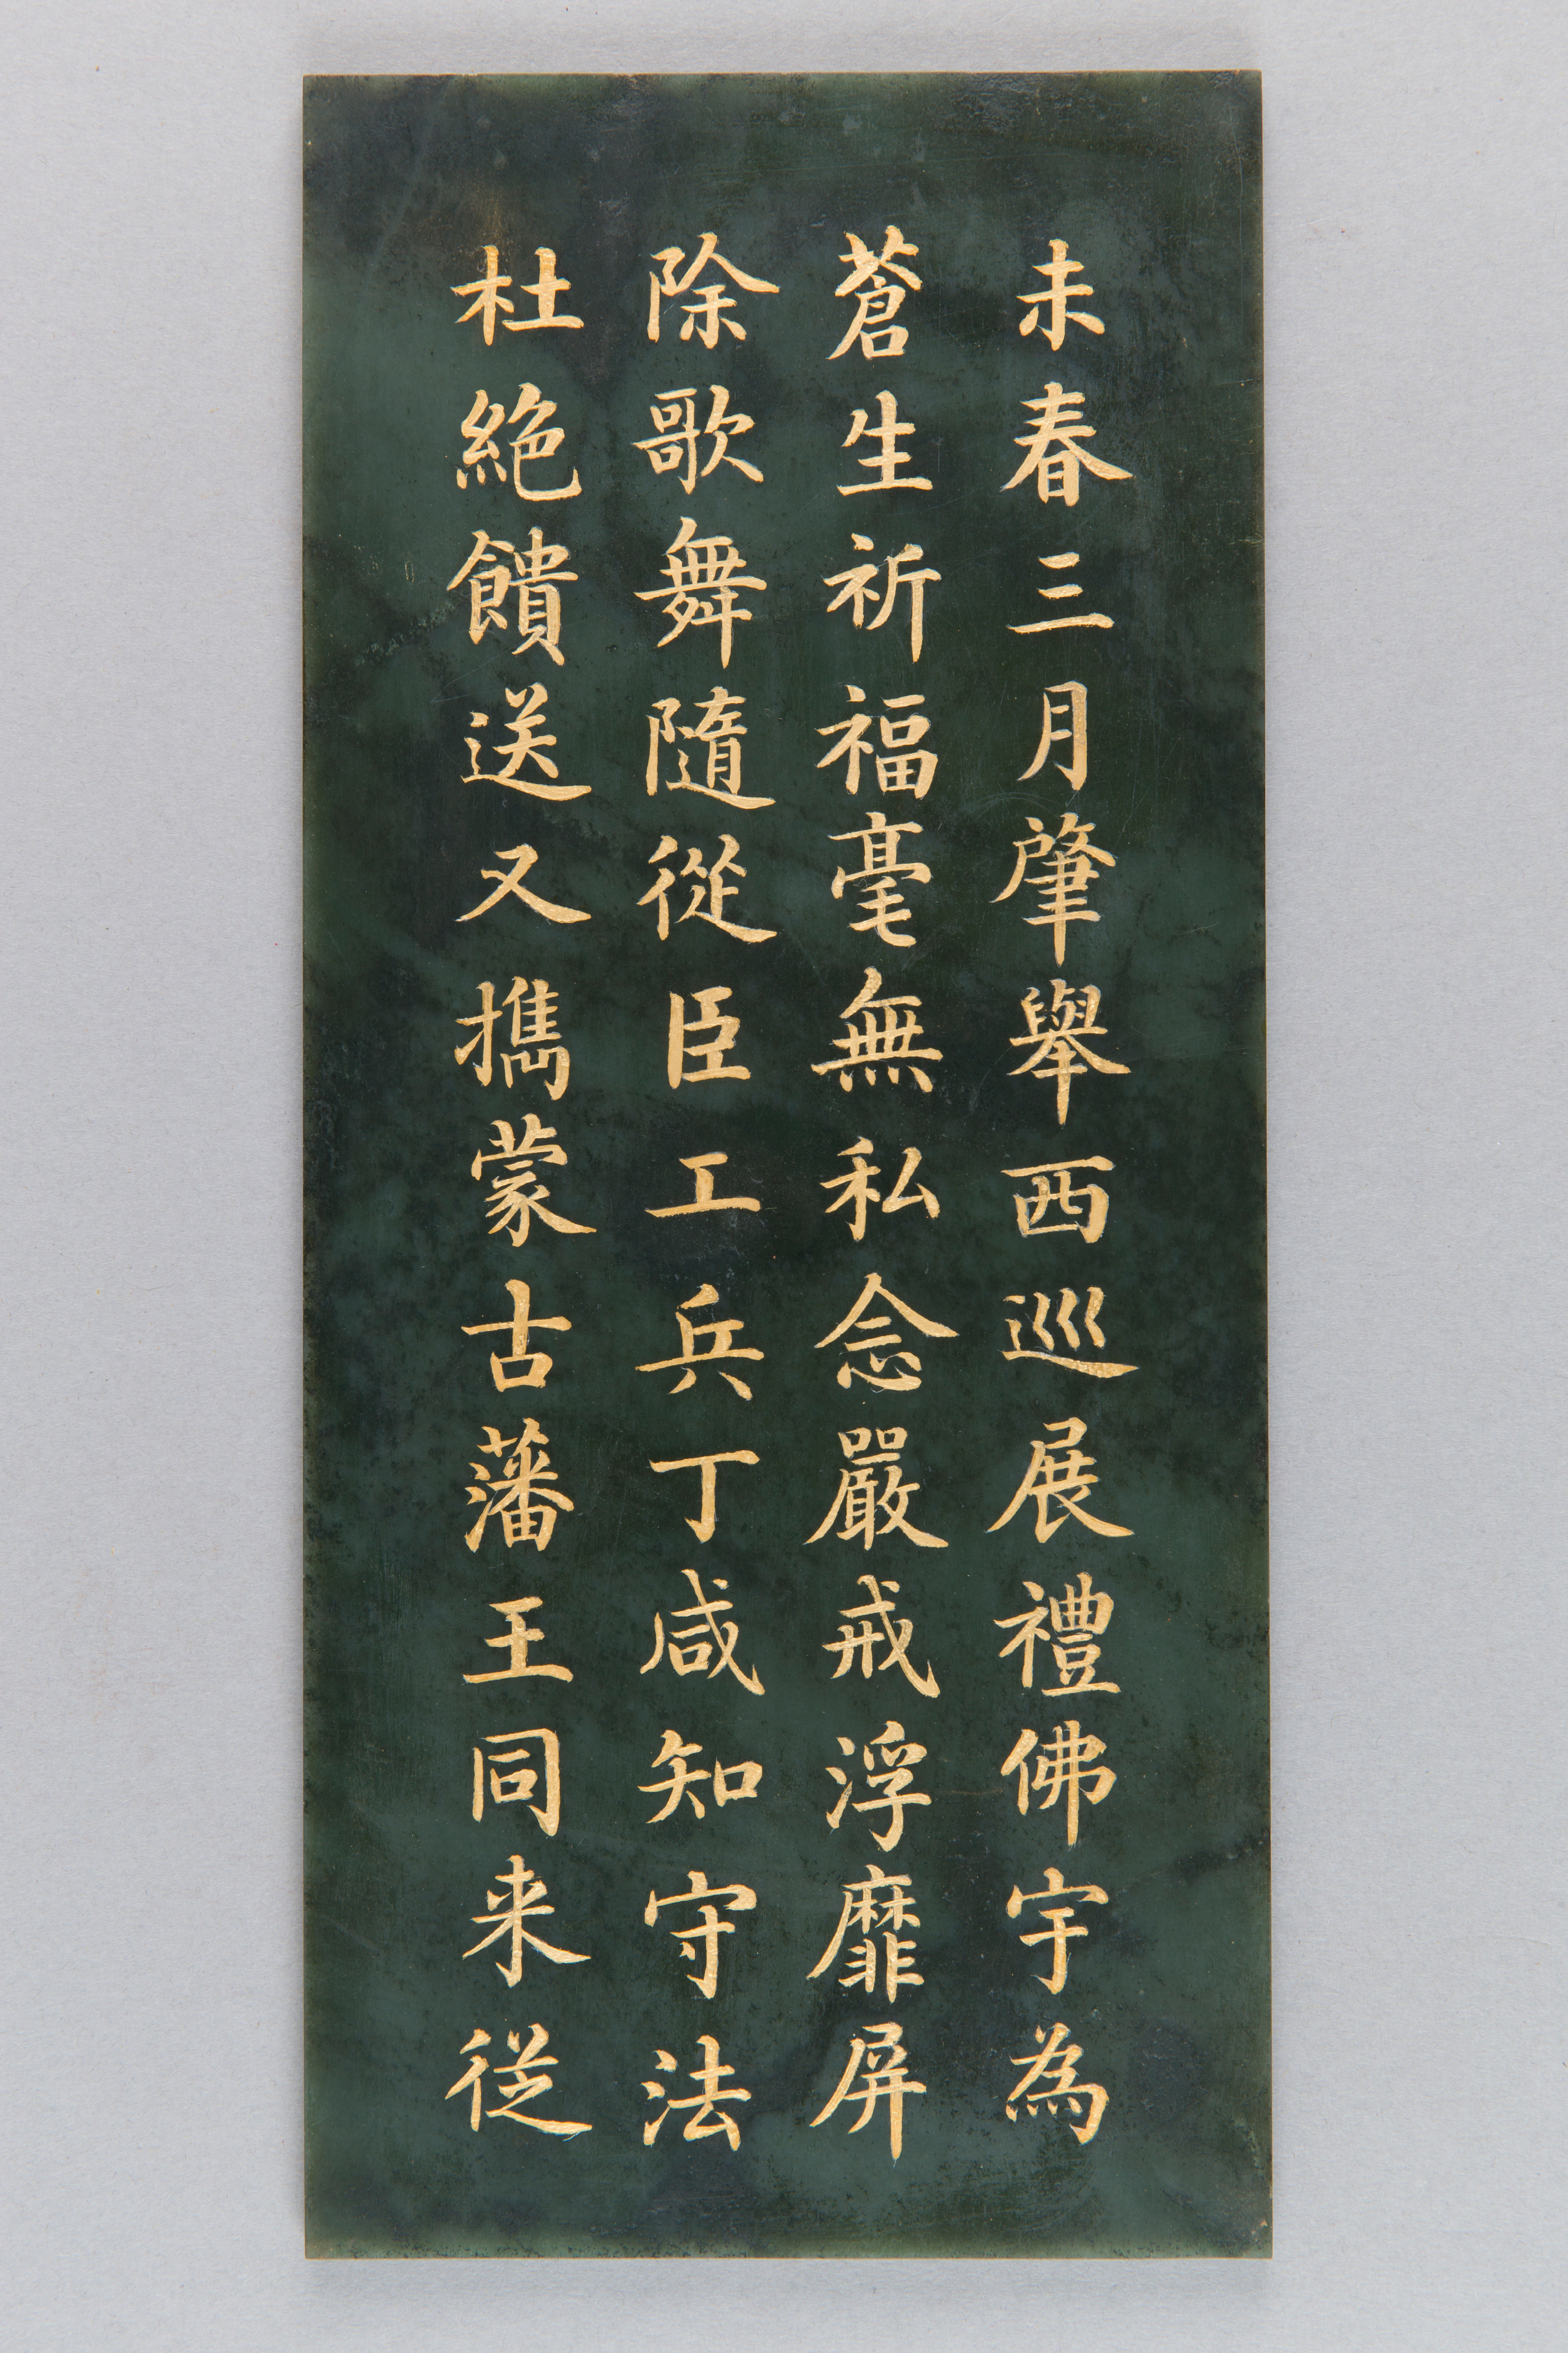 未春三月肇舉西巡展禮佛宇為
蒼生祈福毫無私念嚴戒浮靡屏
除歌舞隨從臣工兵丁咸知守法
杜絶饋送又擕蒙古藩王同来從